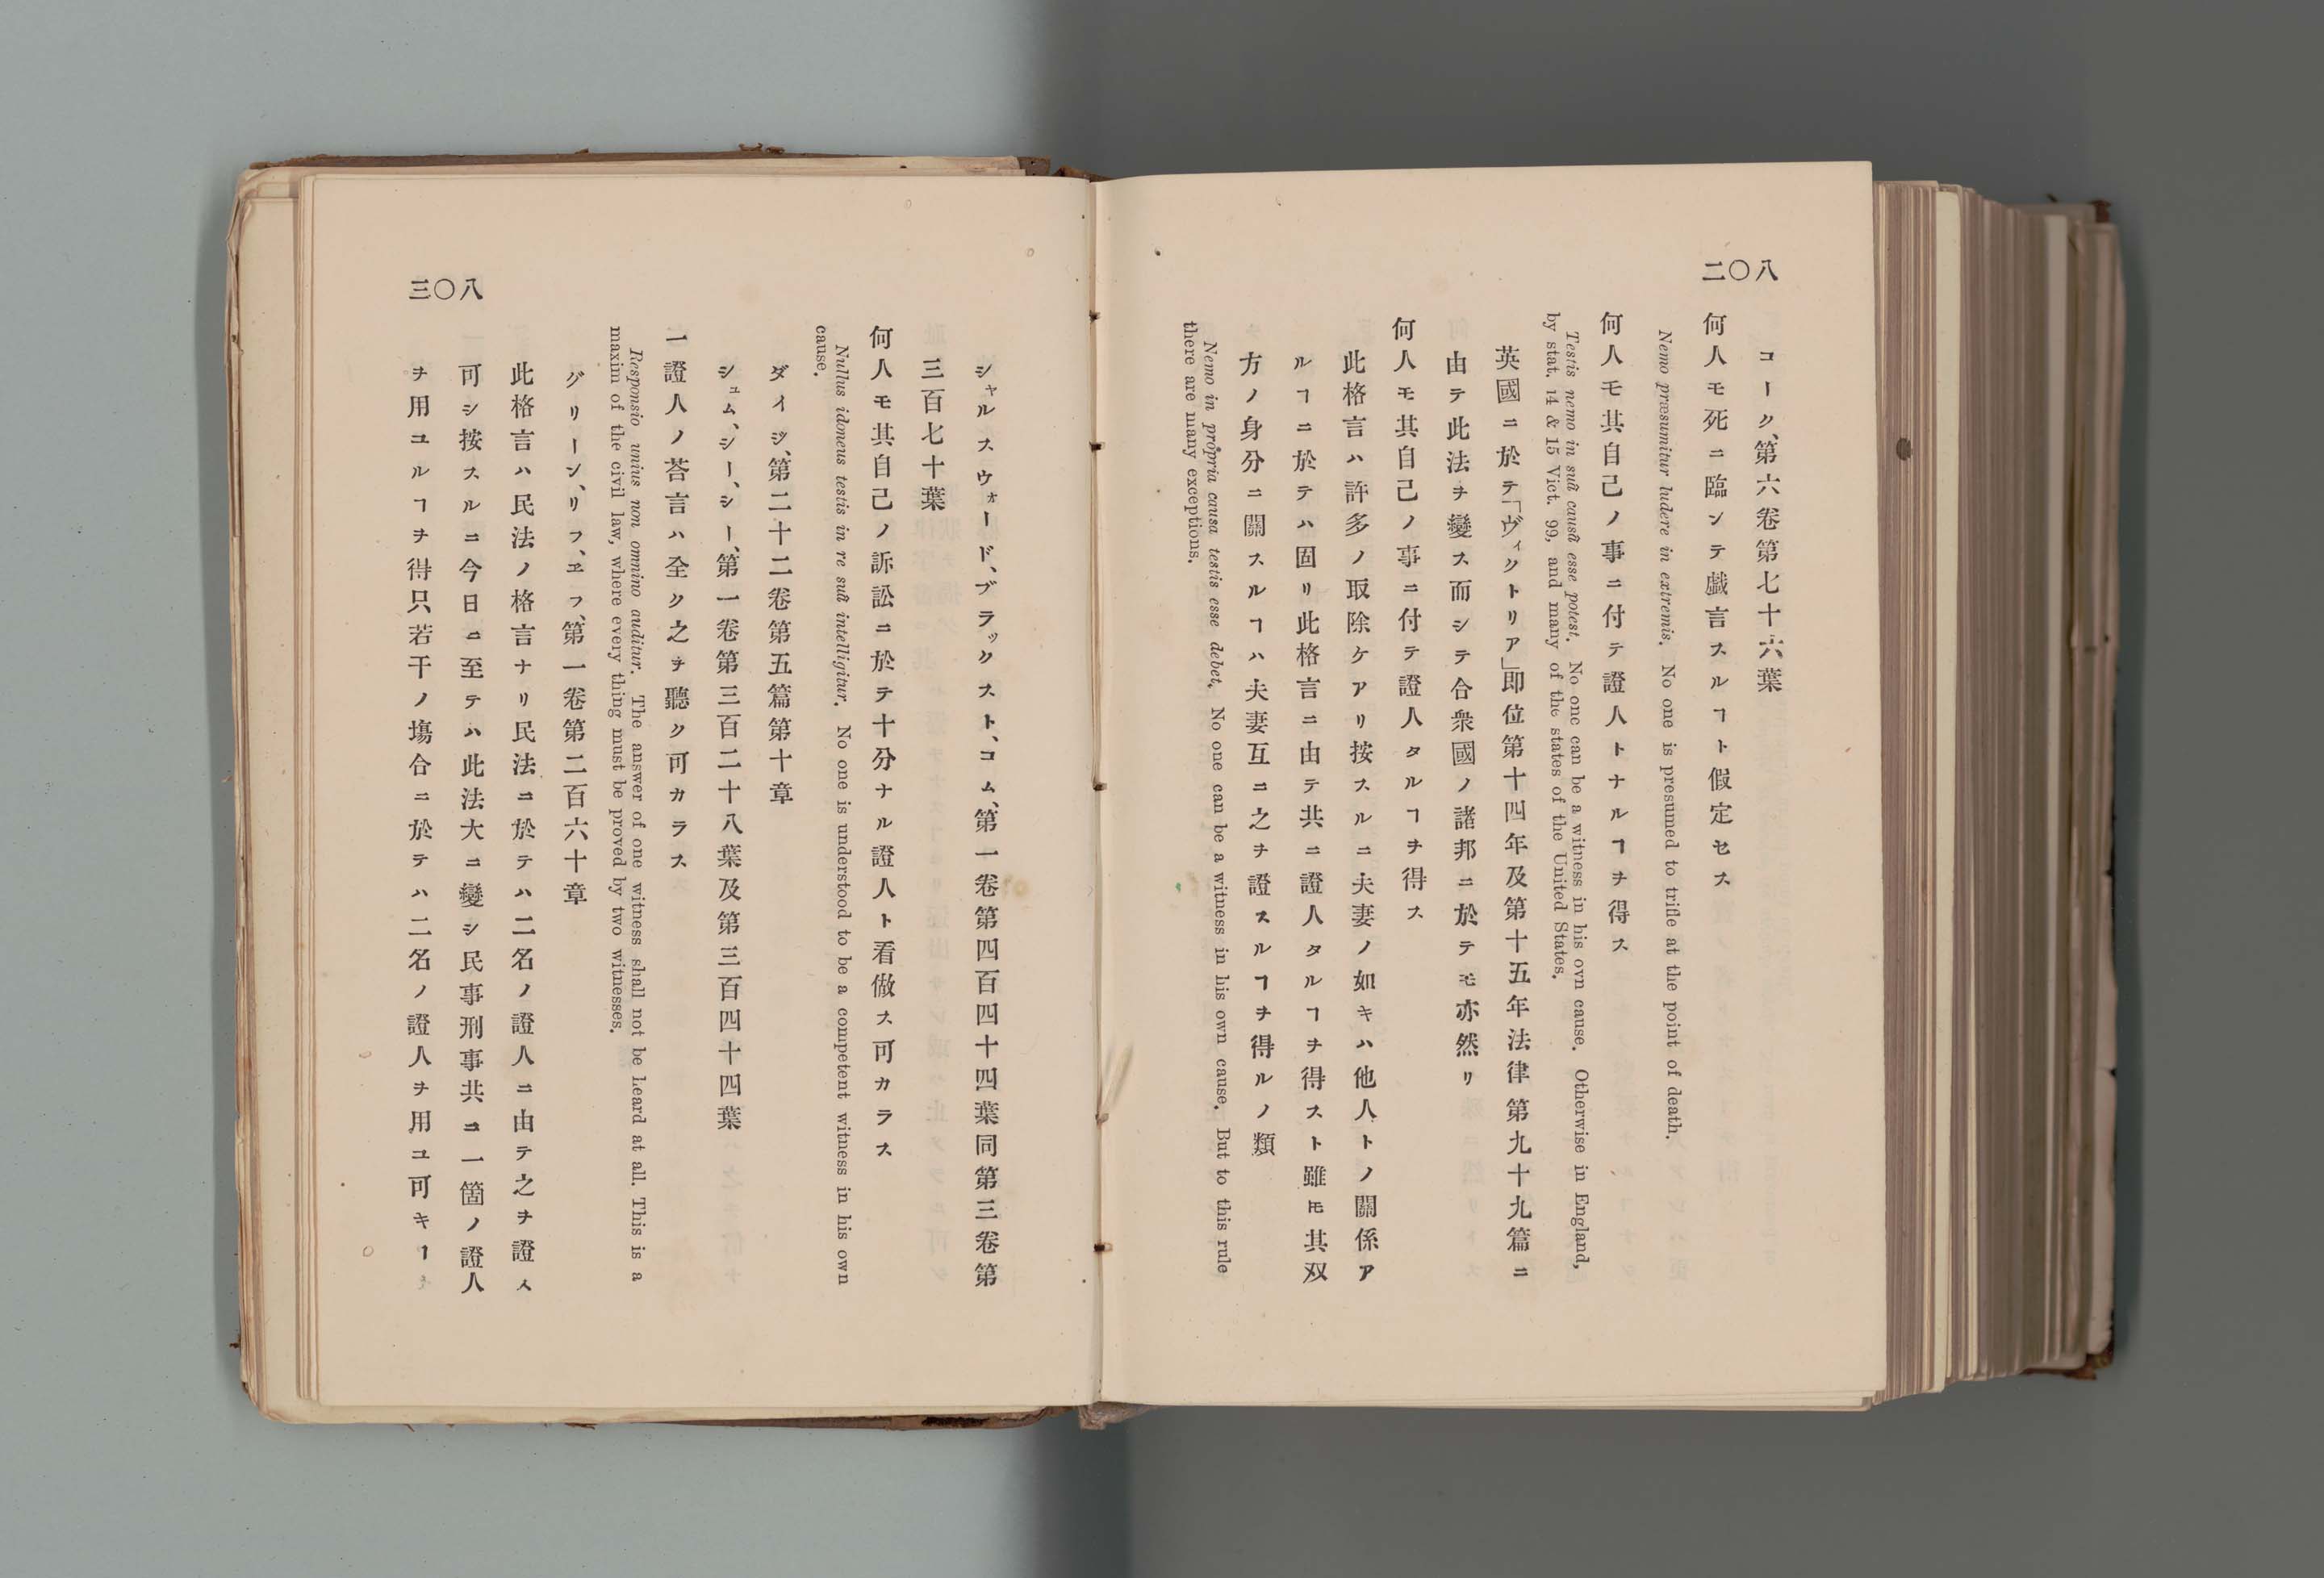 八〇二
コーク、第六卷第七十六葉
何人モ死ニ臨ンテ戯言スルヿト假定セス
Nemo præsumitur ludere in extremis. No one is presumed to trifle at the point of death.
何人モ其自己ノ事ニ付テ證人トナルヿヲ得ス
Testis nemo in suâ causâ esse potest. No one can be a witness in his ovn cause. Otherwise in England,
by stat. 14 & 15 Vict. 99, and many of the states of the United States.
英國ニ於テ「ヴィクトリア」即位第十四年及第十五年法律第九十九篇ニ
由テ此法ヲ變ス而シテ合衆國ノ諸邦ニ於テモ亦然リ
何人モ其自己ノ事ニ付テ證人タルヿヲ得ス
此格言ハ許多ノ取除ケアリ按スルニ夫妻ノ如キハ他人トノ關係ア
ルヿニ於テハ固リ此格言ニ由テ共ニ證人タルヿヲ得スト雖𪜈其双
方ノ身分ニ關スルヿハ夫妻互ニ之ヲ證スルヿヲ得ルノ類
Nemo in prôpria causa testis esse debet. No one can be a witness in his own cause. But to this rule
there are many exceptions.
八〇三
シャルスウォード、ブラックスト、コム、第一卷第四百四十四葉同第三卷第
三百七十葉
何人モ其自己ノ訴訟ニ於テ十分ナル證人ト看做ス可カラス
Nullus idoneus testis in re suâ intelligitur. No one is understood to be a competent witness in his own
cause.
ダイジ、第二十二卷第五篇第十章
シュム、シー、シー、第一卷第三百二十八葉及第三百四十四葉
一證人ノ荅言ハ全ク之ヲ聽ク可カラス
Responsio unius non omnino auditur. The answer of one witness shall not be heard at all. This is a
maxim of the civil law, where every thing must be proved by two witnesses.
グリーン、リフ、ヱフ、第一卷第二百六十章
此格言ハ民法ノ格言ナリ民法ニ於テハ二名ノ證人ニ由テ之ヲ證ス
可シ按スルニ今日ニ至テハ此法大ニ變シ民事刑事共ニ一箇ノ證人
ヲ用ユルヿヲ得只若干ノ塲合ニ於テハ二名ノ證人ヲ用ユ可キヿ